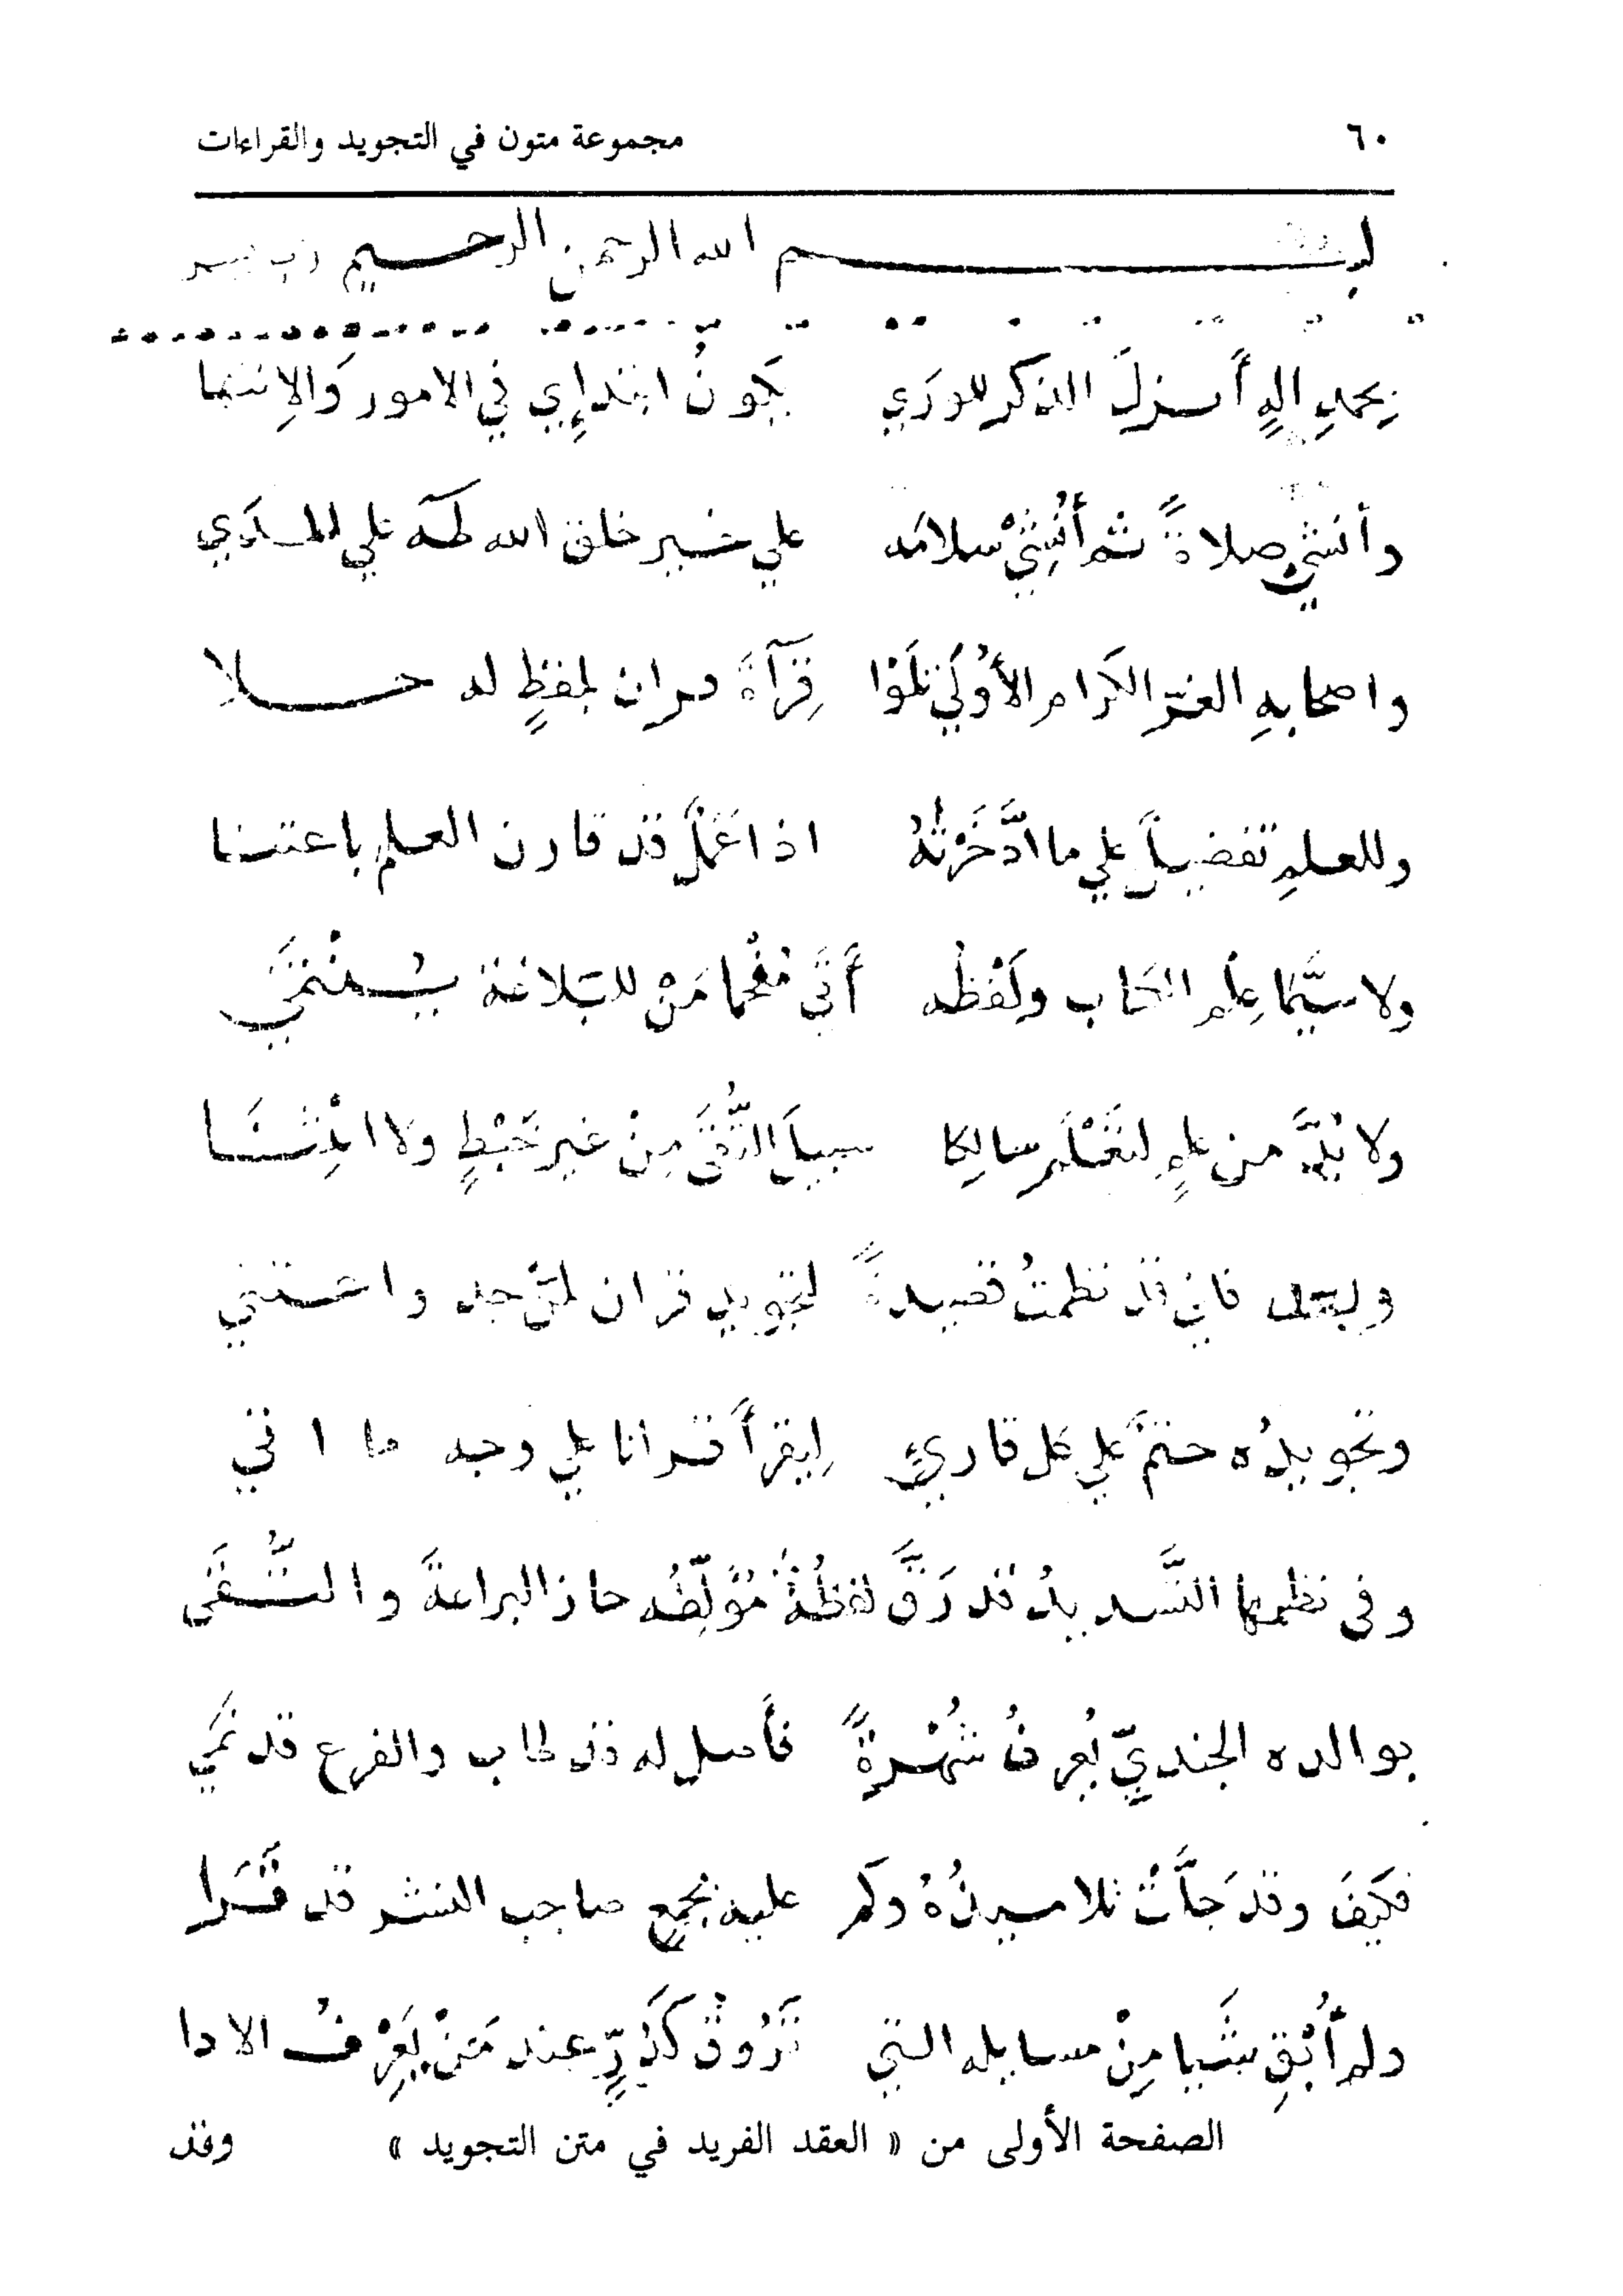 ٦٠ مجموعة متون في التجويد والقراءات
بسم الله الرحمن الرحيم رب يسر
بحمدِ الهٍ أنزلَ الذكر للورَي يكونُ ابتدإي في الامور وَالاِنتها
وأنشي صلاةً ثم أُنشِيْ سلامَه علي خير خلق الله طه علي المدَي
واصحابهِ الغرّ الكرام الأُولَي تلَوْا قِرآةَ قران بلفظٍ له حلا
وللعلمِ تفضيلٌ علي ما ادَّخَرْتُهُ اذا عَمَلٌ قد قارن العلم باعتنا
ولا سيَّما عِلم الكتاب ولَفْظُه أَتَى مُفْحما مَنْ للبَلاغة يُنْتمَى
ولا بُدَّ من علمٍ لتَعْلَم سالكا سبيلَ التُّقَى مِنْ غير خَبْطٍ ولا امْتِنَا
وبعد فاني قد نظمتُ قصيدةً لتجويد قران لمَنْ جد واعتني
وتجويدُه حتمٌ علي كل قاريٍ لِيقرأَ قرانا علي وجه ما اتي
وفى نظمها التَّسديدُ قد رَقَّ لفظُهُ مُؤَلِّفُه حاز البراعةَ والتُّقَى
بوالده الجنديِّ يُعرفُ شُهْرةً فأصل له قد طاب والفرع قد نمَي
فكيفَ وقد جَلَّتْ تلاميذُهُ وكم عليه بجمعٍ صاحب النشر قد قَرَا
ولم أُبْقِ شَيا مِنْ مسايله التي تَرُوْق كَدُرٍّ عند مَنْ يَعْرِفُ الادا
الصفحة الأولى من « العقد الفريد في متن التجويد » وقد